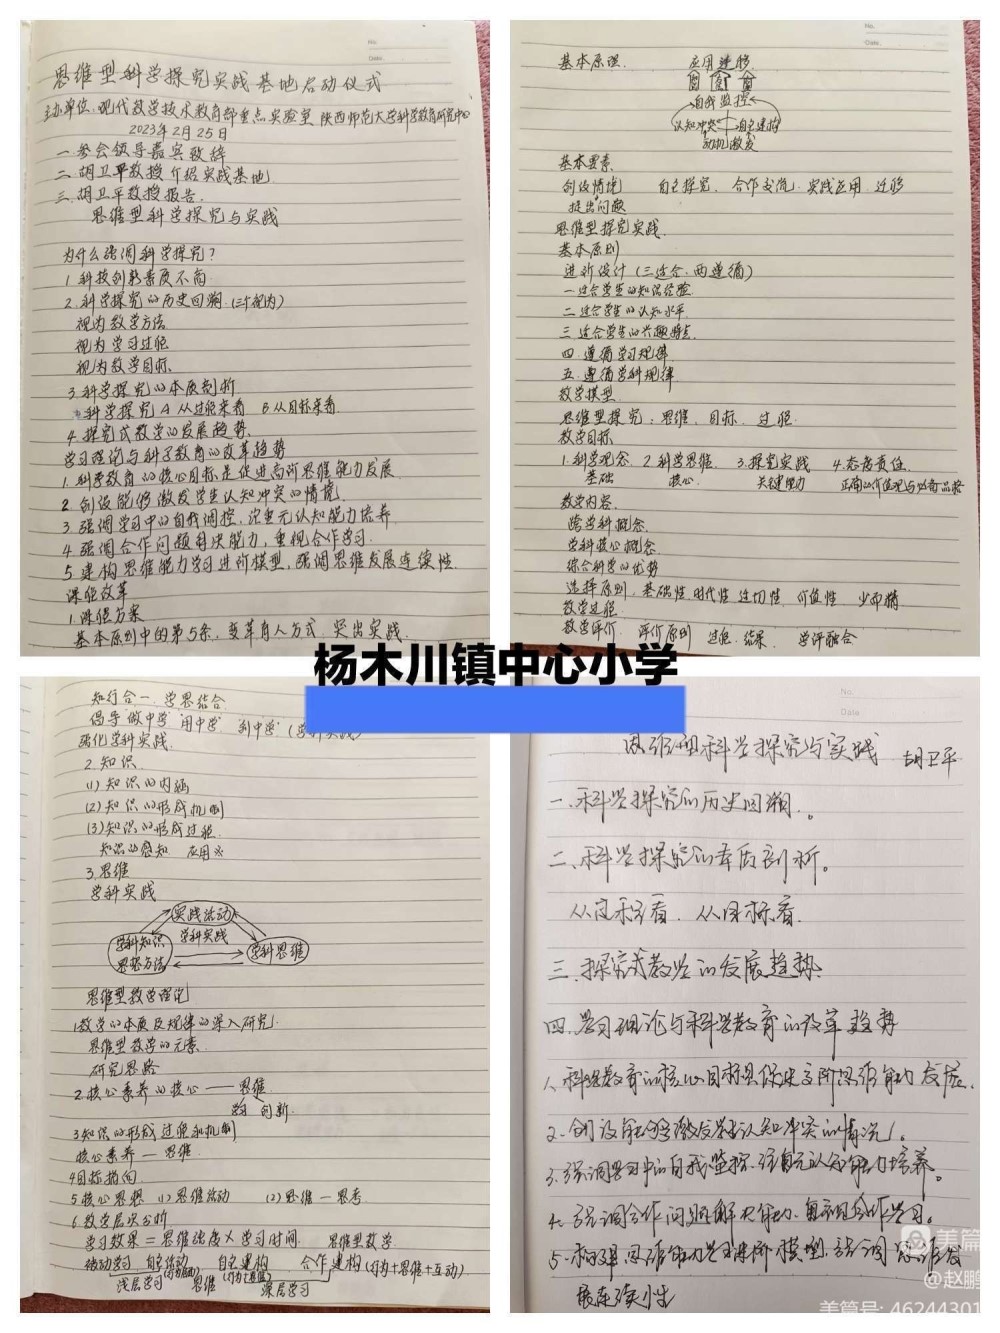 思维型科学探究实践基地启动仪式
主办单位:现代教学技术教育部重点实验室 陕西师范大学科学教育研究中心
2023年2月25日
一.参会领导嘉宾致辞
二.胡卫平教授介绍实践基地
三.胡卫平教授报告
思维型科学探究与实践
为什么强调科学探究?
1.科技创新素质不高
2.科学探究的历史回溯.(三个视为)
视为教学方法
视为学习过程
视为教学目标
3.科学探究的本质剖析
科学探究 A 从过程来看 B 从目标来看
4.探究式教学的发展趋势
学习理论与科学教育的改革趋势
1.科学教育的核心目标是促进高阶思维能力发展
2.创设能够激发学生认知冲突的情境
3.强调学习中的自我调控,注重元认知能力培养
4.强调合作问题解决能力,重视合作学习
5.建构思维能力学习进阶模型,强调思维发展连续性
课程改革
1.课程方案
基本原则中的第5条,变革育人方式,突出实践
基本原理 应用迁移
自我监控
认知冲突 自主建构
动机激发
基本要素
创设情境 自主探究、合作交流、实践应用、迁移
提出问题
思维型探究实践
基本原则
进阶设计(三适合、两遵循)
一适合学生的知识经验
二适合学生的认知水平
三适合学生的兴趣特点
四.遵循学习规律
五.遵循学科规律
教学模型
思维型探究:思维、目标、过程
教学目标
1.科学观念 2.科学思维 3.探究实践 4.态度责任
基础 核心 关键能力 正确的价值观与必备品格
教学内容
跨学科概念
学科核心概念
综合科学的优势
选择原则,基础性,时代性 适切性 价值性 少而精
教学过程
教学评价 评价原则 过程、结果 学评融合
杨木川镇中心小学
知行合一,学思结合
倡导"做中学"用中学"创中学"(学科实践)
强化学科实践
2.知识
(1)知识的内涵
(2)知识的形成机制
(3)知识的形成过程
知识的感知 应用
3.思维
学科实践
实践活动
学科知识 学科实践 学科思维
思想方法
思维型教学理论
1.教学的本质及规律的深入研究
思维型教学的元素
研究思路
2.核心素养的核心——思维
学习 创新
3.知识的形成过程和机制
核心素养—思维
4.目标指向
5.核心思想 (1)思维活动 (2)思维—思考
6.教学层次分析
学习效果=思维强度×学习时间 思维型教学
被动学习 自主活动 自主建构 合作建构(行为+思维+互动)
浅层学习 思维 深层学习
No.
Date
思维型科学探究与实践 胡卫平
一.科学探究的历史回溯。
二、科学探究的本质剖析。
从过程看、从目标看
三.探究式教学的发展趋势
四.学习理论与科学教育的改革趋势
1、科学教育的核心目标是促进高阶思维能力发展.
2.创设能够激发学生认知冲突的情况。
3.强调学习中的自我监控,注重元认知能力培养。
4.强调合作问题解决能力、重视合作学习。
5.构建思维能力学习进阶模型,强调思维发
展连续性
美篇
@赵鹏
美篇号: 46244301